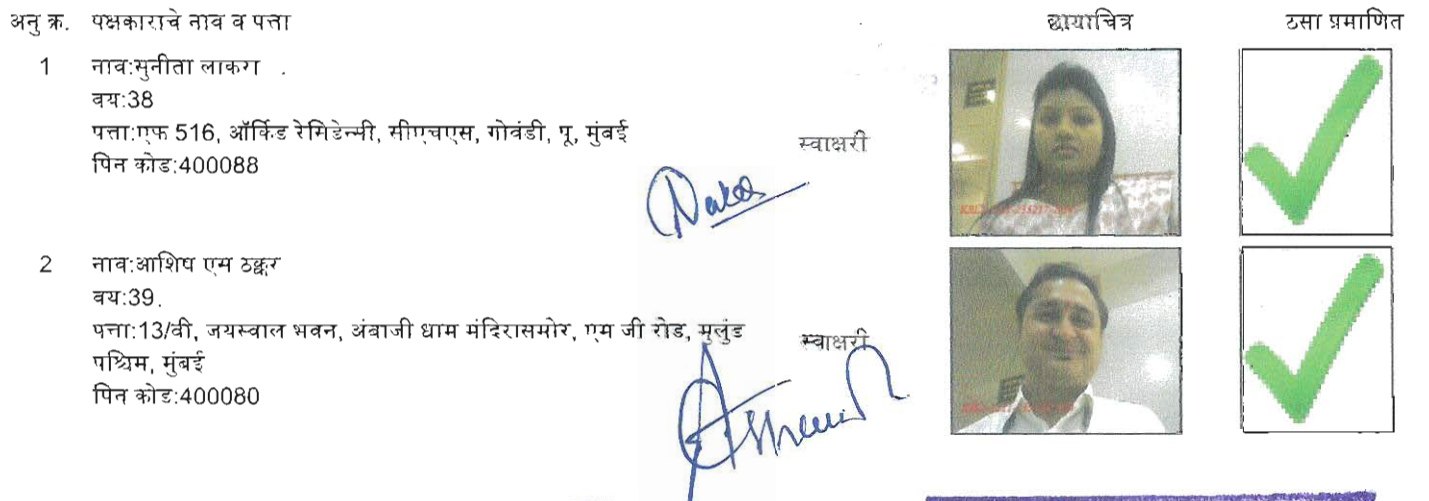 अनु क्र. पक्षकाराचे नाव व पत्ता छायाचित्र ठसा प्रमाणित
1 नाव:सुनीता लाकरा .
वय:38
पत्ता:एफ 516, ऑर्किड रेसिडेन्सी, सीएचएस, गोवंडी, पू, मुंबई
स्वाक्षरी
पिन कोड:400088
2 नाव:आशिष एम ठक्कर
वय:39.
पत्ता:13/बी, जयस्वाल भवन, अंबाजी धाम मंदिरासमोर, एम जी रोड, मुलुंड
स्वाक्षरी
पश्चिम, मुंबई
पिन कोड:400080